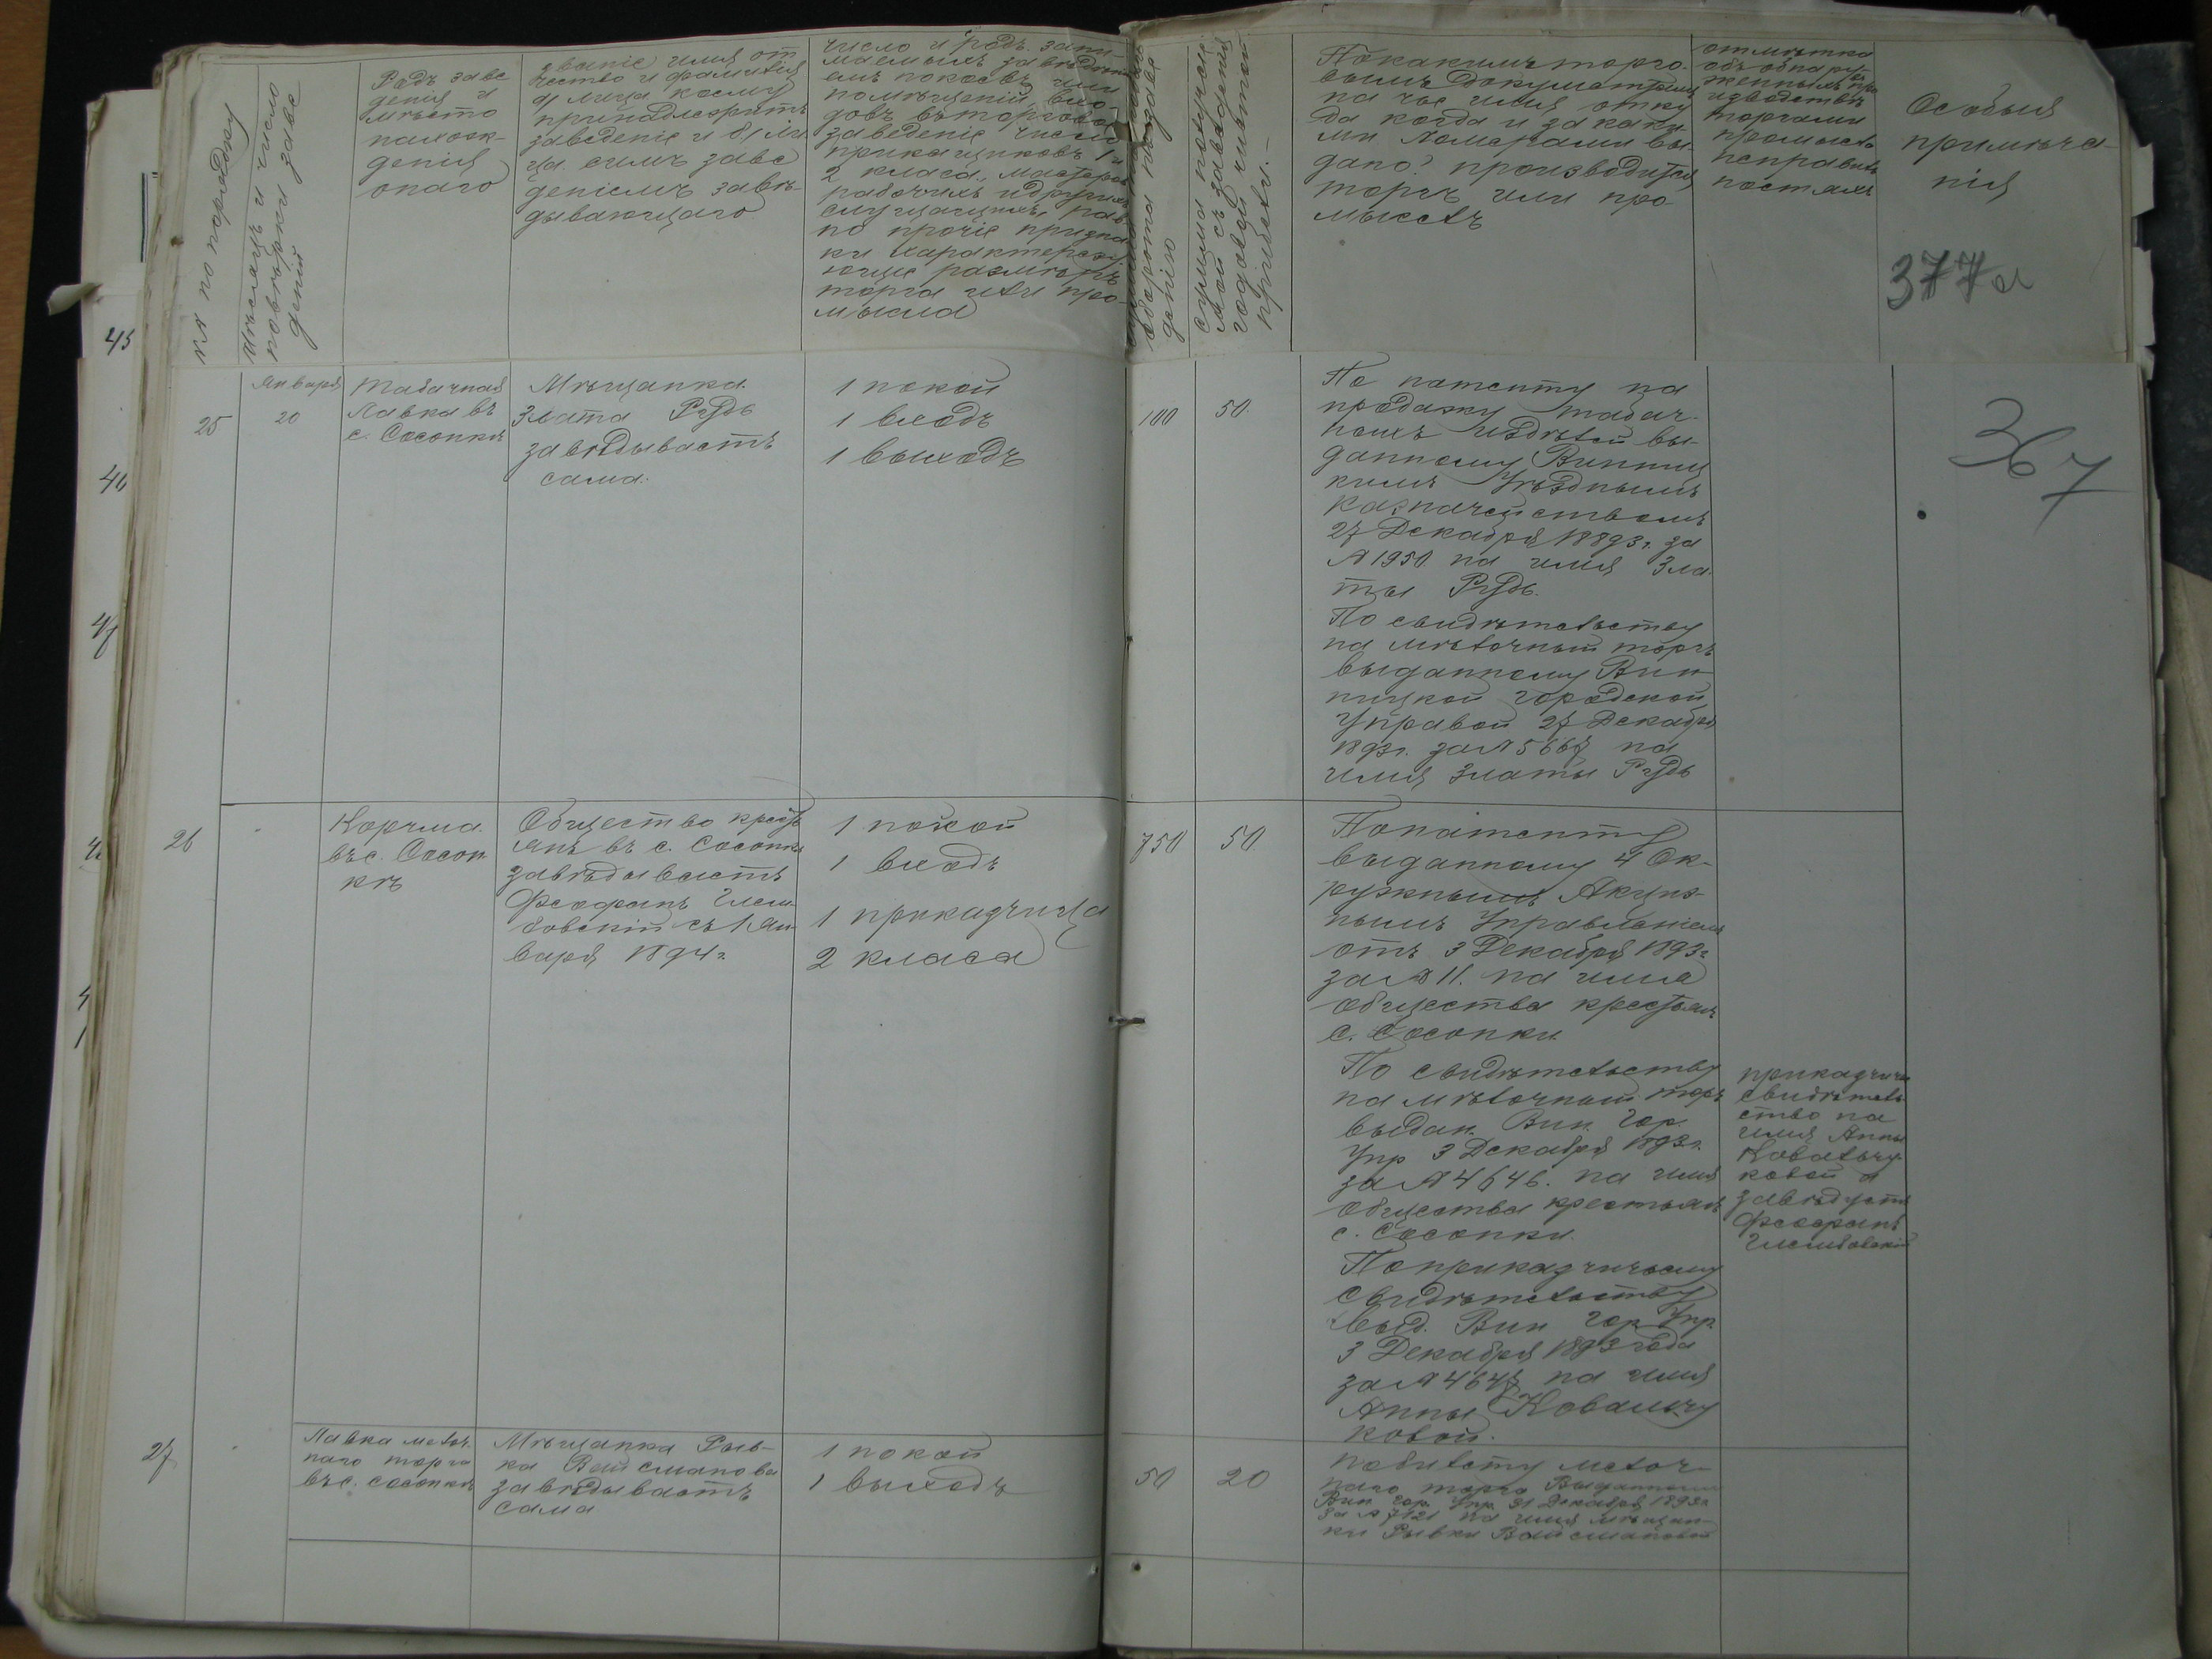 №№ по порядку
Мѣсяцъ и число
повѣрки заве
деній
Родъ заве
денія и
мѣсто
нахож-
денія
онаго
званіе имя от
чество и фамилія
а/ лица коему
принадлежитъ
заведеніе и б/ ли
ца симъ заве
деніемъ завѣ-
дывающаго
число и родъ зани
маемыхъ заведені
емъ покоевъ или
помѣщеній, вхо-
довъ въ торговое
заведеніе число
прикащиковъ 1 и
2 класа, мастеров
рабочихъ и другихъ
служащихъ, рав
но прочіе призна
ки характеризу
ющіе размѣръ
торга или про-
мысла
оборота по заве
денію
сумма получае
мой съ заведенія
годовой чистой
прибыли.-
По какимъ торго-
вымъ документамъ
на чье имя отку
да когда и за каки
ми номерами вы-
дано? производится
торгъ или про
мыселъ
отмѣтка
объ обнару-
женныхъ про
изводствѣ
торгами
промысла
неправиль
ностяхъ
Особыя
примѣча-
нія
377а
367
25
Января
20
Табачная
Лавка въ
с. Сосонкѣ
Мѣщанка
Злата Рудь
завѣдываетъ
сама.
1 покой
1 входъ
1 выходъ
100
50.
По патенту на
продажу табач-
ныхъ издѣлій вы-
данному Винниц
кимъ Уѣзднымъ
Казначействомъ
27 Декабря 1893 г. за
№ 1950 на имя Зла
ты Рудь.
По свидѣтельству
на мѣлочный торгъ
выданному Вин
ницкой Городской
Управой 27 Декабря
1893 г. за № 5667 на
имя Златы Рудь
26
Корчма
въ с. Сосон
кѣ
Общество кресть
янъ въ с. Сосонкѣ
завѣдываетъ
Феофанъ
съ 1 Ян
варя 1894 г.
1 покой
1 входъ
1 приказчица
2 класа
750
50
По патенту
выданному 4 Ок-
ружнымъ Акциз-
нымъ Управленіемъ
отъ 3 Декабря 1893 г.
за № 11. на имя
общества крестьянъ
с. Сосонки.
По свидѣтельству
на мѣлочный торгъ
выдан. Вин. Гор.
Упр 3 Декабря 1893 г.
за № 4646. на имя
Общества крестьянъ
с. Сосонки.
По приказчичьему
свидѣтельству
выд. Вин Гор Упр
3 Декабря 1893 года
за № 4647 на имя
Анны Ковальчу
ковой.
приказчичье
свидѣтель
ство на
имя Анны
Ковальчу-
ковой а
завѣдуетъ
Феофанъ
27
Лавка мелоч-
наго торга
въ с. Сосонкѣ
Мѣщанка Рыв-
ка Вайсманова
завѣдываетъ
сама.
1 покой
1 выходъ
50
20
По билету мелоч-
наго торга Выданному
Вин Гор. Упр. 31 Декабря 1893 г.
за № 7121 на имя мѣщан-
ки Рывки Вайсмановой